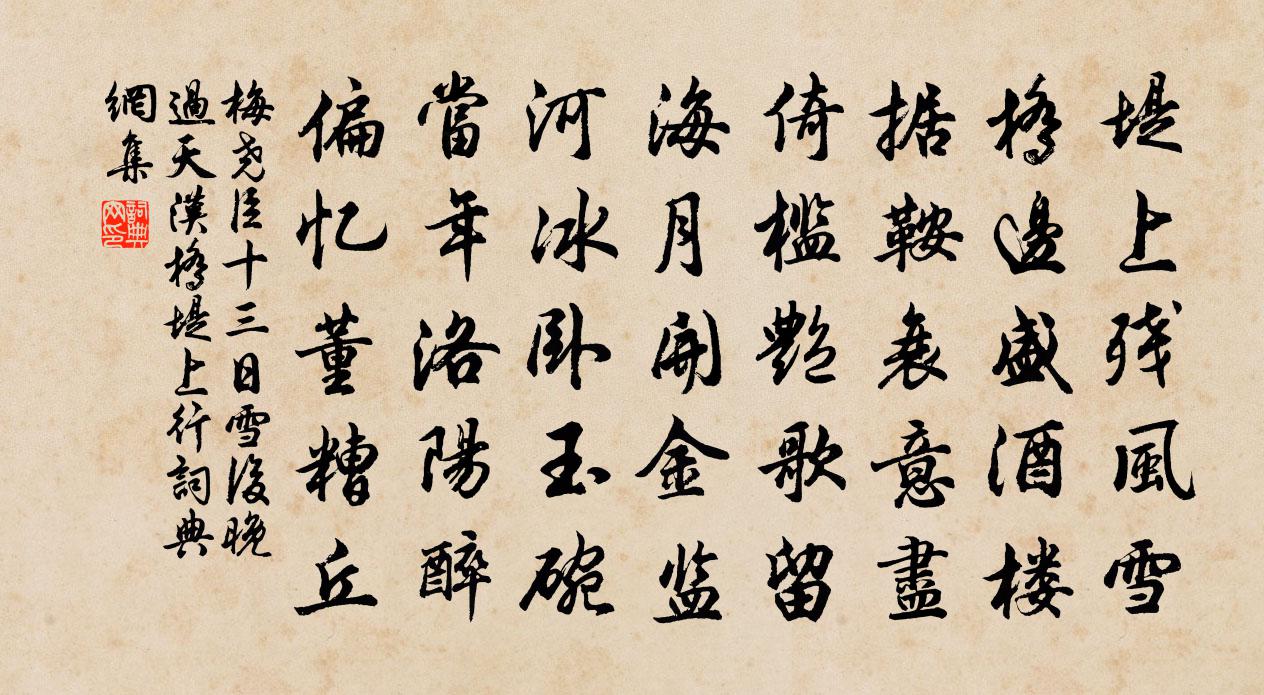 堤上残風雪
橋邊盛酒楼
据鞍衰意盡
倚槛艶歌留
海月開金监
河冰卧玉碗
當年洛陽醉
偏忆董糟丘
梅尧臣十三日雪後晚
過天漢橋堤上行詞典
網集
詞典
网印